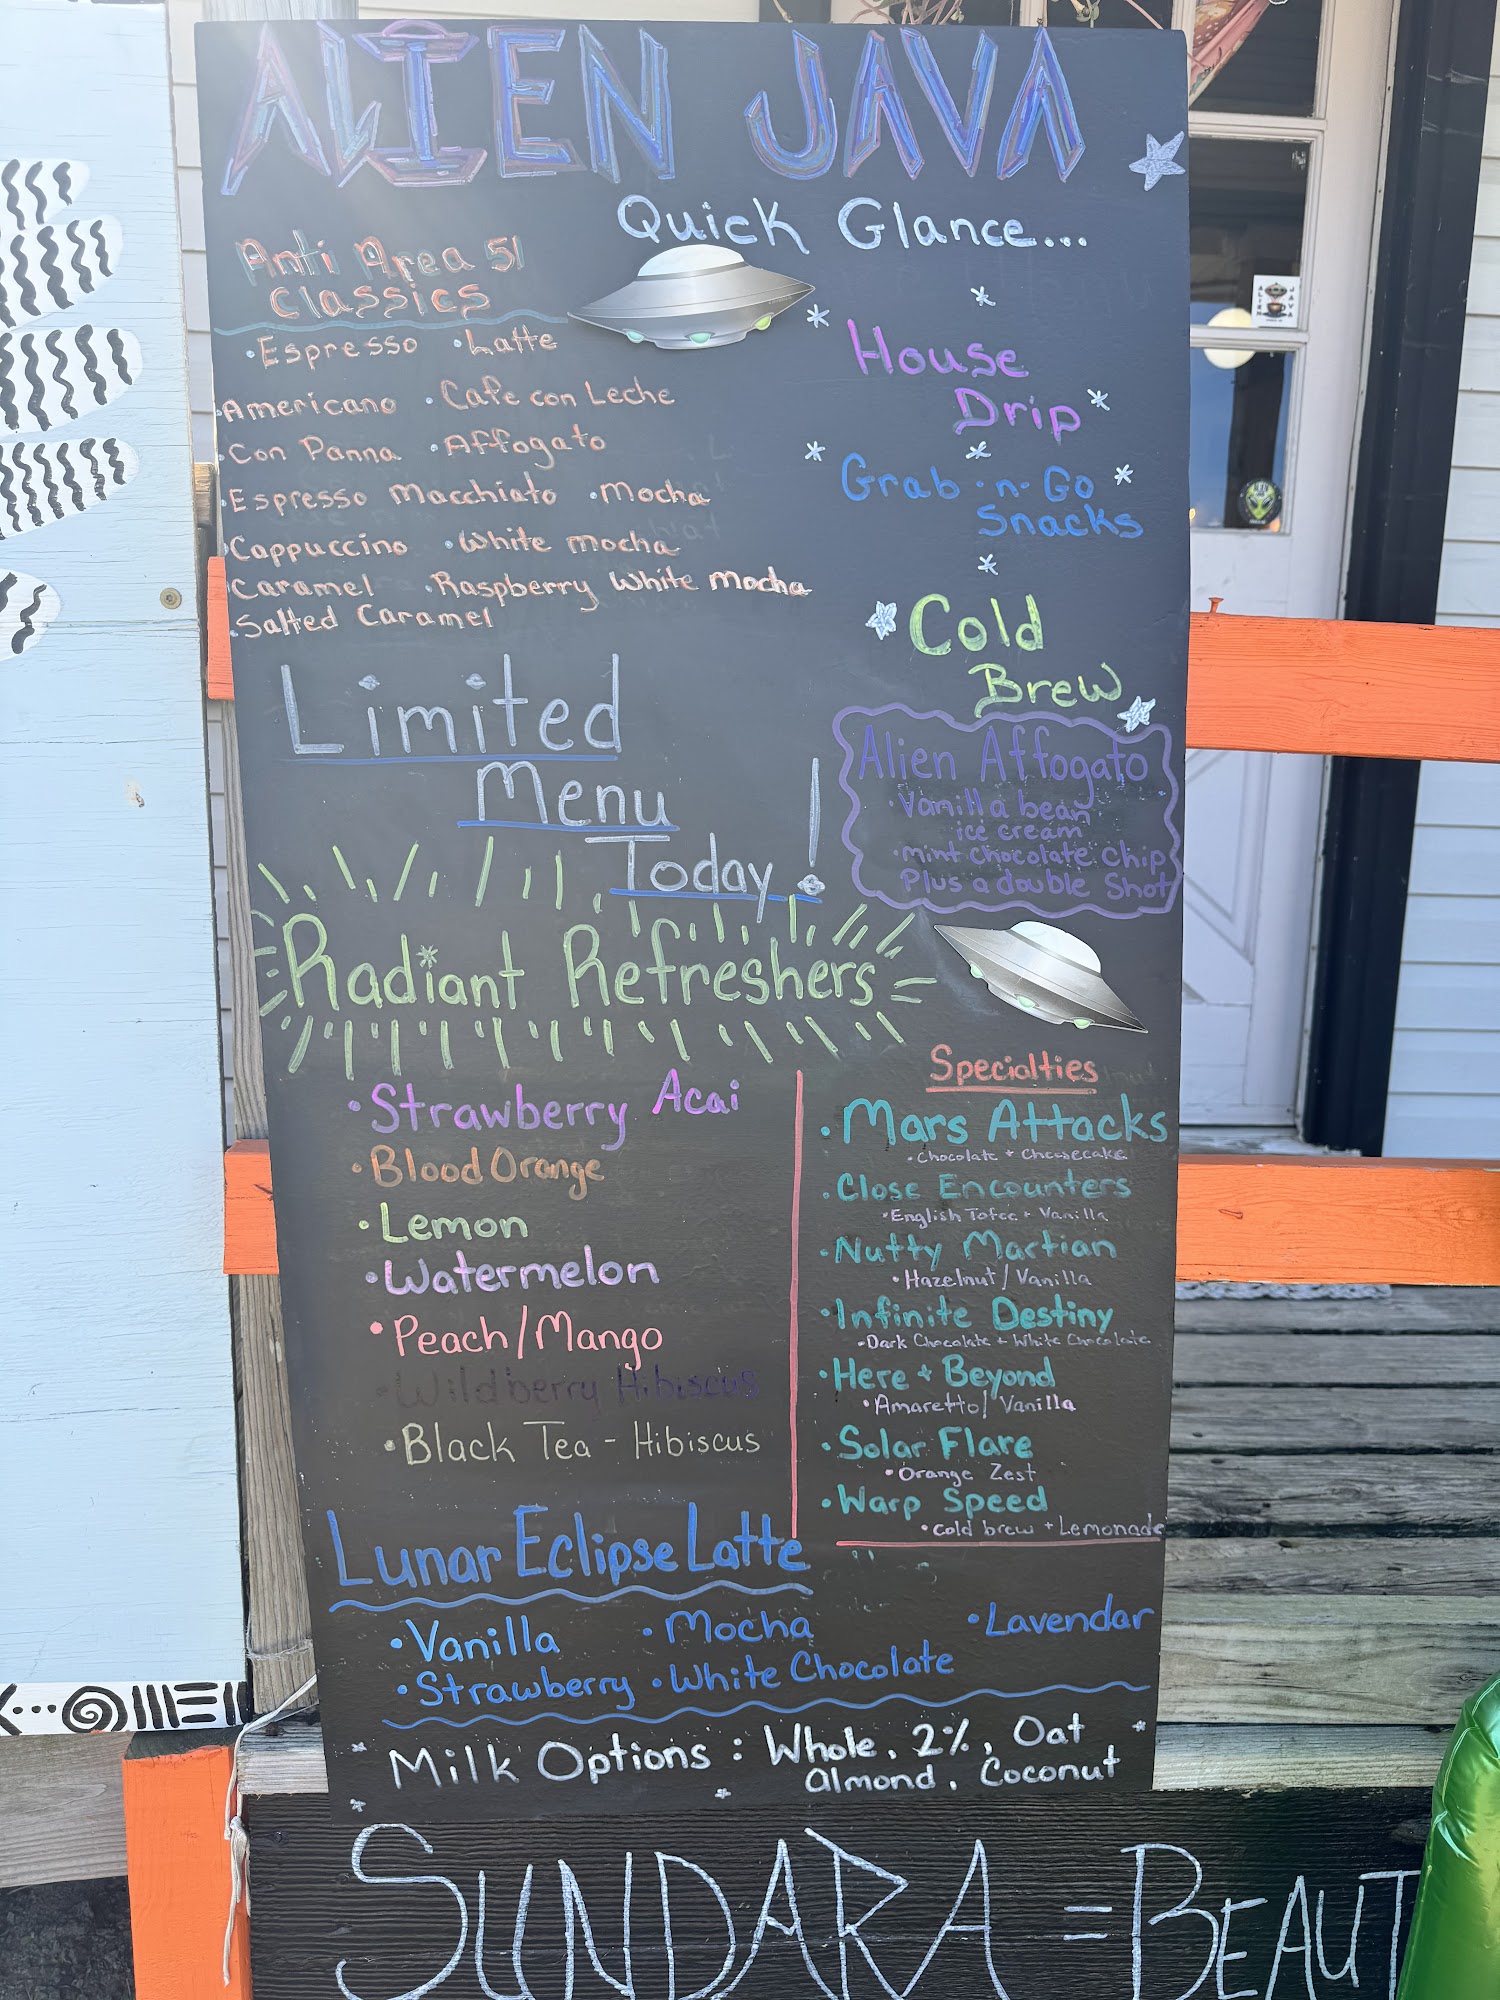 ALIEN JAVA
Quick Glance...
Anti Area 51
Classics
• Espresso • Latte
• Americano • Cafe con Leche
• Con Panna • Affogato
• Espresso Macchiato • Mocha
• Cappuccino • White mocha
• Caramel • Raspberry White mocha
• Salted Caramel
House
Drip
Grab-n-Go
Snacks
Cold
Brew
Limited
Menu
Today!
Alien Affogato
• Vanilla bean
ice cream
• mint chocolate chip
Plus a double Shot
Radiant Refreshers
• Strawberry Acai
• Blood Orange
• Lemon
• Watermelon
• Peach/Mango
• Wildberry Hibiscus
• Black Tea - Hibiscus
Specialties
• Mars Attacks
• Chocolate + Cheesecake
• Close Encounters
• English Tofee + Vanilla
• Nutty Martian
• Hazelnut/Vanilla
• Infinite Destiny
• Dark Chocolate + White Chocolate
• Here + Beyond
• Amaretto/Vanilla
• Solar Flare
• Orange Zest
• Warp Speed
• Cold brew + Lemonade
Lunar Eclipse Latte
• Vanilla • Mocha • Lavendar
• Strawberry • White Chocolate
Milk Options: Whole, 2%, Oat
almond, Coconut
SUNDARA = BEAUT